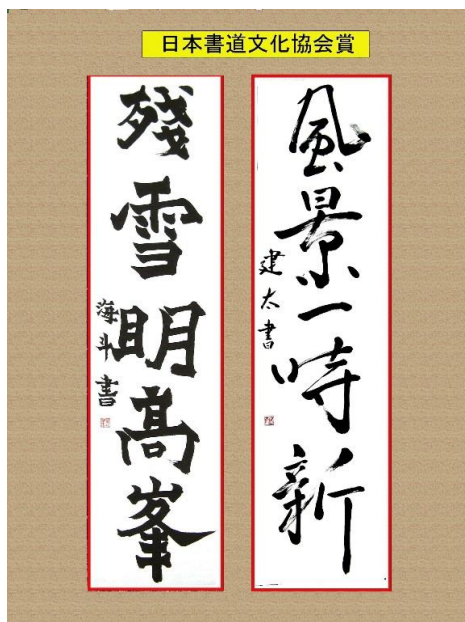 日本書道文化協会賞
風景一時新
建太書
残雪明髙峯
海斗書